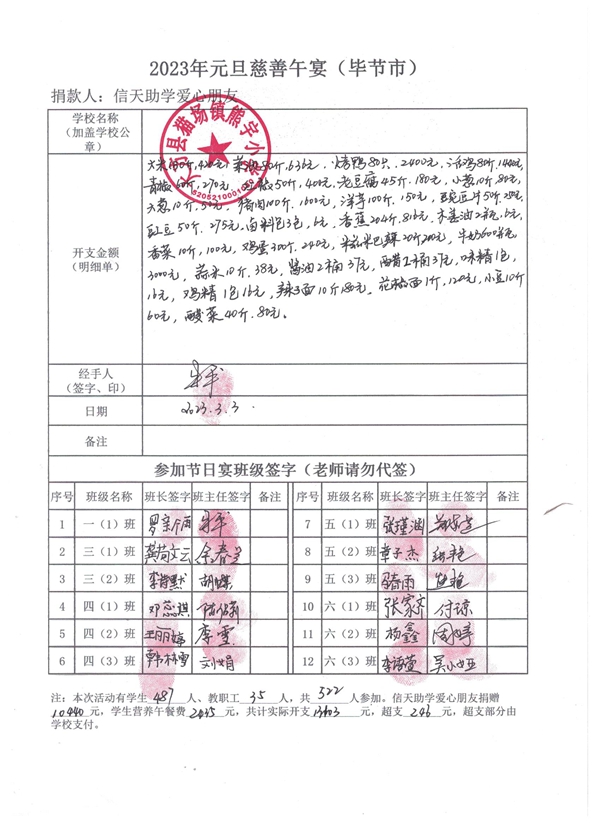 2023年元旦慈善午宴（毕节市）
捐款人：信天助学爱心朋友
学校名称
（加盖学校公
章）
县猫场镇熊宇小
开支金额
（明细单）
烤鸭80只.2400元，活鸡80斤.1440元
青椒 270元， 50斤，400元，老豆腐45斤.180元，小葱10斤.80元，
大葱10斤， 猪肉100斤.1600元，洋芋100斤，150元，豌豆
豇豆50斤.275元，卤料包3包，6元，香蕉204斤.816元，木姜油2瓶.6元，
香菜10斤，100元，鸡蛋300个.240元，
3000元，蒜米10斤.38元，酱油2桶37元，陈醋2桶37元，味精1包，
16元，鸡精1包16元，辣子面10斤180元，花椒面1斤，120元，小豆10斤
60元，酸菜40斤.80元。
经手人
（签字、印）
日期
2023.3.3.
备注
参加节日宴班级签字（老师请勿代签）
序号 班级名称 班长签字 班主任签字 备注 序号 班级名称 班长签字 班主任签字 备注
1 一（1）班 7 五（1）班 张瑾涵
2 三（1）班 余春 8 五（2）班 章子杰
3 三（2）班 胡蝶 9 五（3）班
4 四（1）班 邓蕊祺 10 六（1）班 张家齐 付谅
5 四（2）班 王丽婷 李雪 11 六（2）班 杨鑫 周婷
6 四（3）班 韩林雪 刘娟 12 六（3）班 李语萱
注：本次活动有学生 487 人、教职工 35 人，共 522 人参加。信天助学爱心朋友捐赠
10440 元，学生营养午餐费 元，共计实际开支 元，超支 246 元，超支部分由
学校支付。